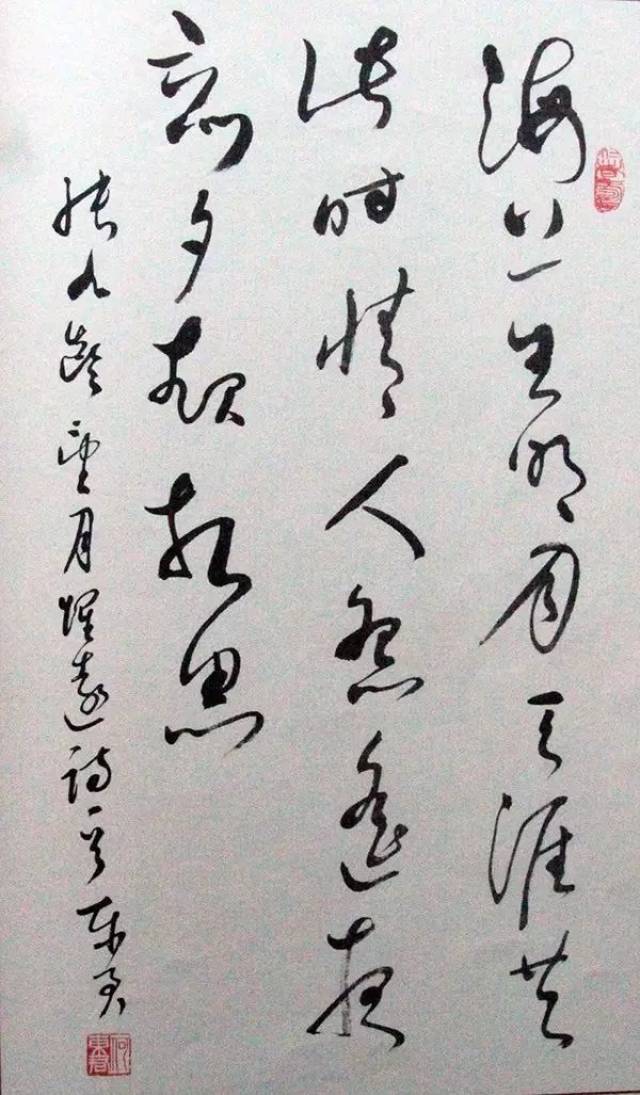 海上生明月天涯共
此时情人怨遥夜
竟夕起相思
张九龄望月怀远诗一首